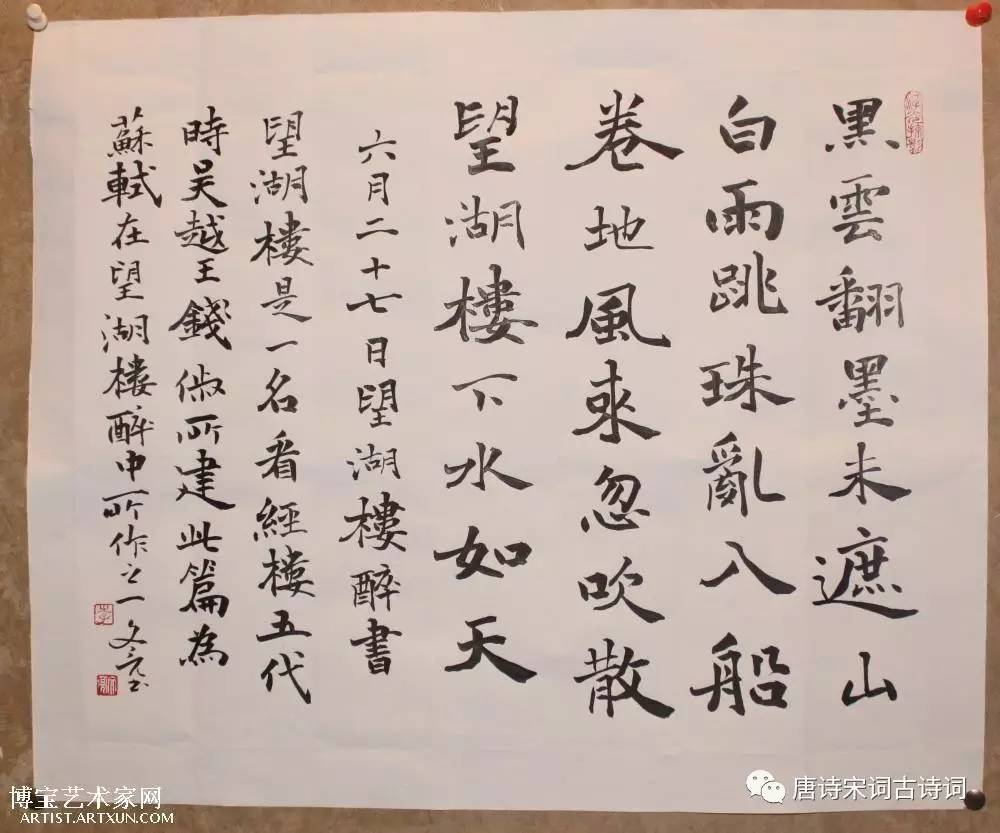 黑雲翻墨未遮山
白雨跳珠亂入船
卷地風來忽吹散
望湖樓下水如天
六月二十七日望湖樓醉書
望湖樓是一名看經樓五代
時吴越王錢俶所建此篇為
蘇軾在望湖樓醉中所作之一
文亮书
博宝艺术家网
ARTIST.ARTXUN.COM
唐诗宋词古诗词